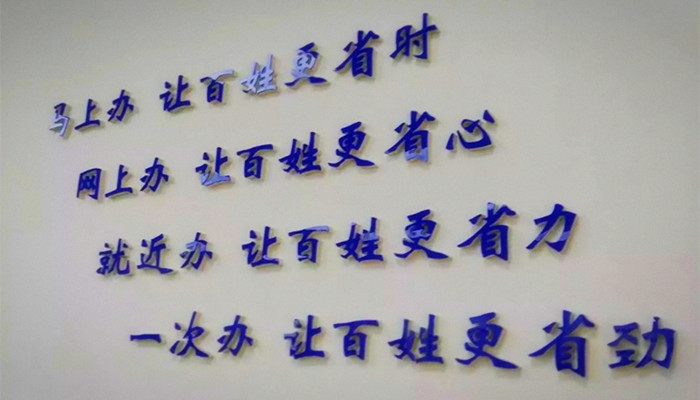 马上办 让百姓更省时
网上办 让百姓更省心
就近办 让百姓更省力
一次办 让百姓更省劲